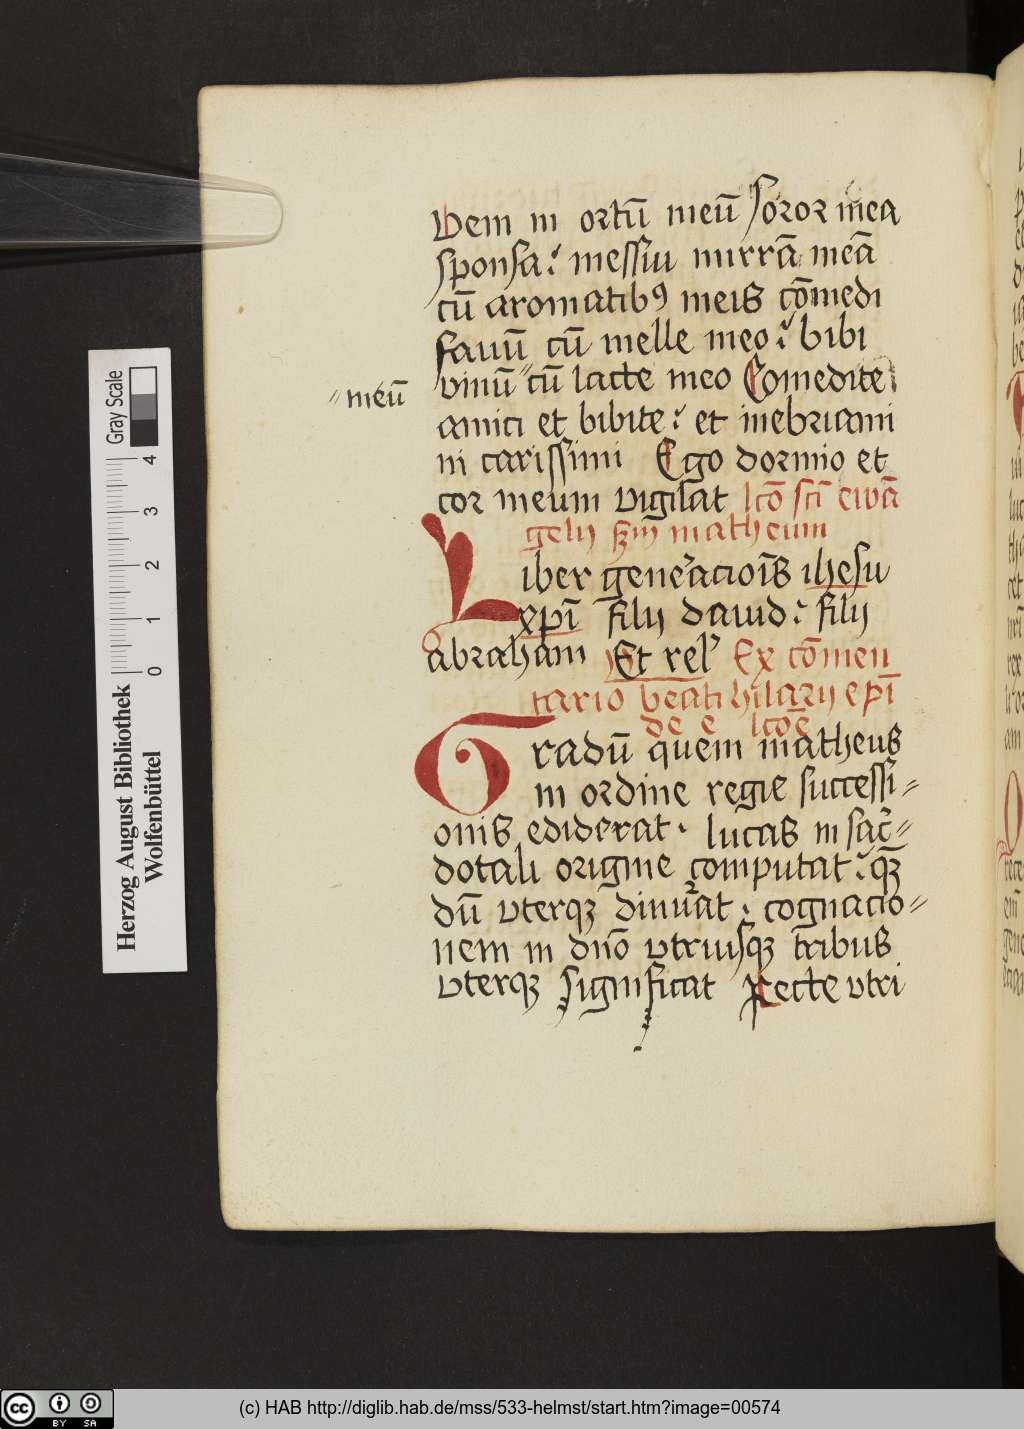 Vem in ortū meū soror mea
sponsa: messui mirrā meā
cū aromatibꝯ meis cōmedi
fauū cū melle meo: bibi
vinū ʺcū lacte meo Comedite
ʺmeū
amici et bibite: et inebriami
ni carissimi Ego dormio et
cor meum vigilat lcō scī ewā
gelij scdm̄ matheum
Liber generacioīs ihesu
xpī filij dauid: filij
abraham Et rel' Ex cōmen
tario beati hilarij epī
de e lcōe
Tradū quem matheus
in ordine regie successi-
onis ediderat. lucas in sac̄-
dotali origine computat: qꝫ
dū vterqꝫ dinūat: cognacio-
nem in dnō vtriusqꝫ tribus
vterqꝫ significat Recte vtri
Gray Scale
4 3 2 1 0
Herzog August Bibliothek
Wolfenbüttel
cc BY SA
(c) HAB http://diglib.hab.de/mss/533-helmst/start.htm?image=00574